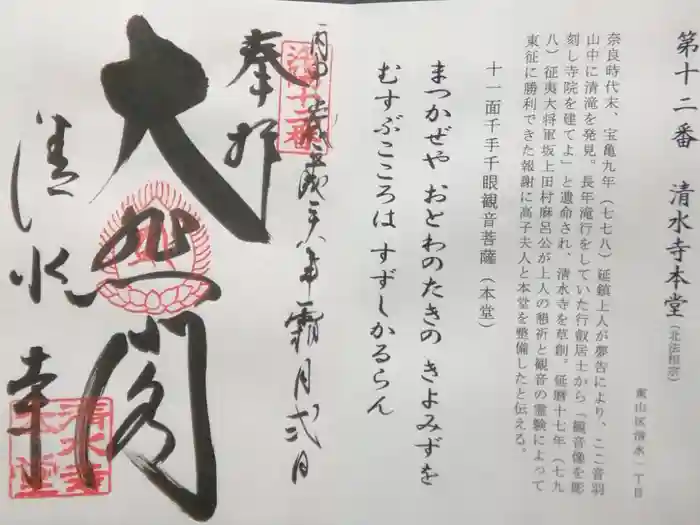 第十二番 清水寺本堂（北法相宗）
東山区清水一丁目
奈良時代末、宝亀九年（七七八）延鎮上人が夢告により、ここ音羽
山中に清滝を発見。長年滝行をしていた行叡居士から「観音像を彫
刻し寺院を建てよ」と遺命され、清水寺を草創。延暦十七年（七九
八）征夷大将軍坂上田村麻呂公が上人の懇祈と観音の霊験によって
東征に勝利できた報謝に高子夫人と本堂を整備したと伝える。
十一面千手千眼観音菩薩（本堂）
まつかぜや おとわのたきの きよみずを
むすぶこころは すずしかるらん
丙申歳 平成二八年霜月弐日
奉拝
洛陽十二番
大悲閣
清水寺
清水寺
本堂